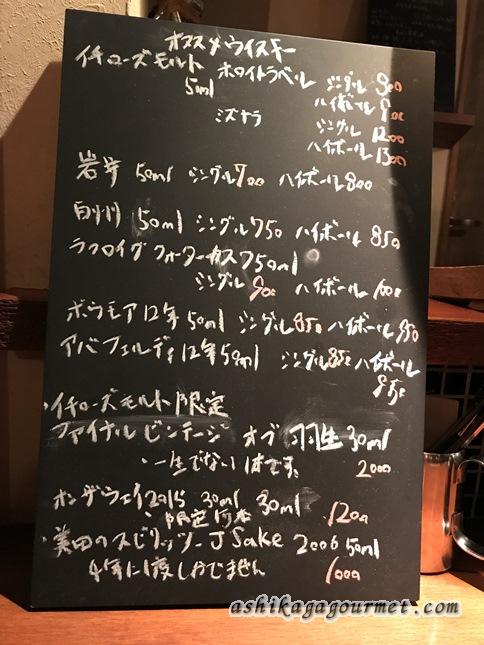 オススメウイスキー
イチローズモルト ホワイトラベル シングル 900
5ml ハイボール
ミズナラ シングル 1200
ハイボール 1300
岩井 50ml シングル700 ハイボール800
白州 50ml シングル750 ハイボール850
ラフロイグ クォーターカスク50ml
シングル 900 ハイボール 1000
ボウモア12年50ml シングル850 ハイボール950
アバフェルディ12年50ml シングル850 ハイボール
・イチローズモルト限定
ファイナルビンテージ オブ 羽生 30ml
・一生でないはずです。 2000
オンザウェイ2015 30ml 30ml
・限定 1200
・美田のスピリッツ-J Sake 2006 50ml
4年に1度しかでません 1000
ashikagagourmet.com